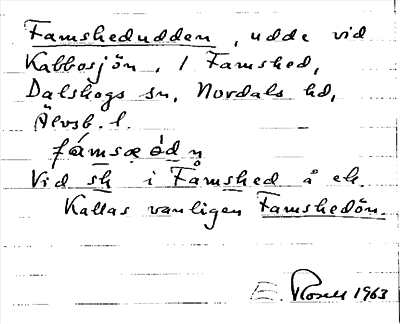 Famshedudden, udde vid
Kabbosjön, i Famshed,
Dalskogs sn, Nordals hd,
Älvsb. l.
fámsæ òd n̥
Vid sh i Famshed å ek.
Kallas vanligen Famshedön.
E. 1963